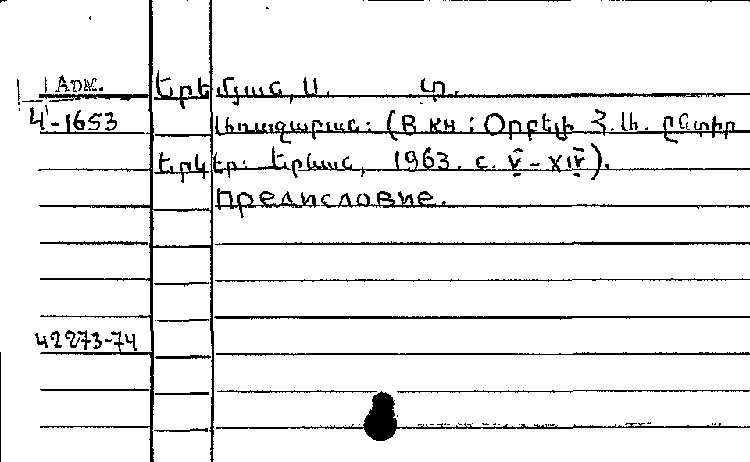 Арм. Երեմյան, Ս. Տ.
Ч-1653 Առաջաբան: (В кн: Օրբելի Հ. Ա. Ընտիր
երկեր: Երևան, 1963. с. V - XIV).
Предисловие.
42273-74